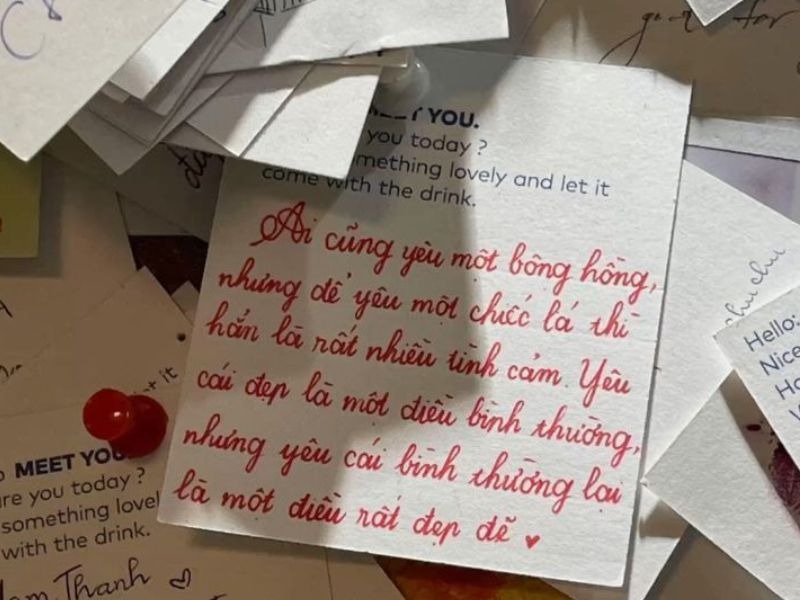 good for
MEET YOU.
you today ?
something lovely and let it
come with the drink.
Ai cũng yêu một bông hồng,
nhưng để yêu một chiếc lá thì
hẳn là rất nhiều tình cảm. Yêu
cái đẹp là một điều bình thường,
nhưng yêu cái bình thường lại
là một điều rất đẹp đẽ ♥
chuchu
Hello:
Nice
it
MEET YOU
are you today ?
something lovel
with the drink.
Thanh ♡